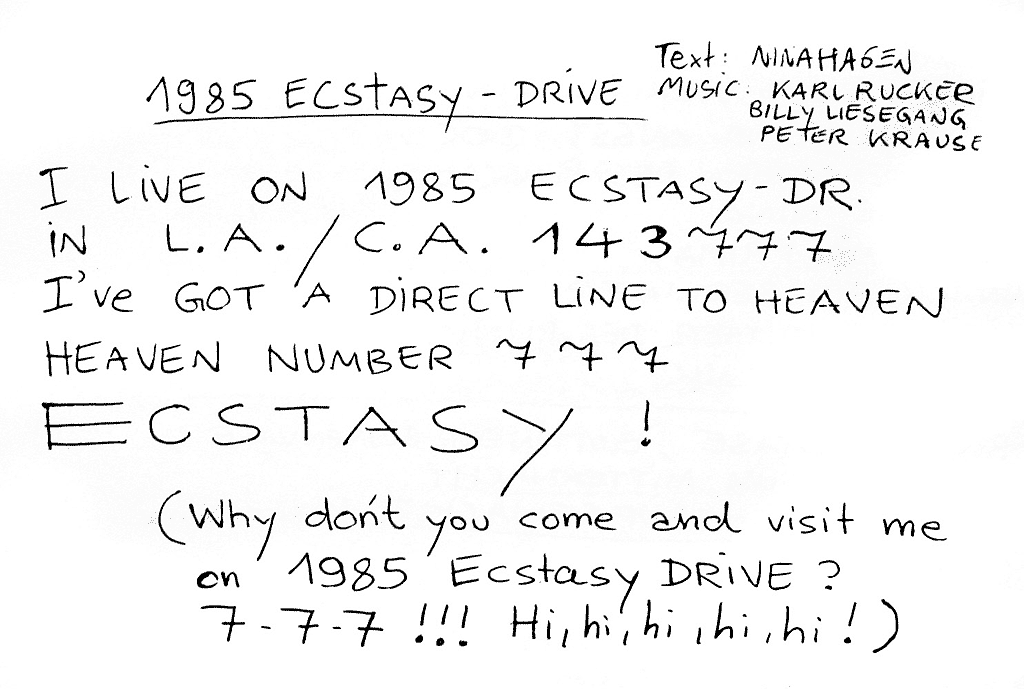 1985 ECSTASY - DRIVE
Text: NINA HAGEN
MUSIC: KARL RUCKER
BILLY LIESEGANG
PETER KRAUSE
I LIVE ON 1985 ECSTASY-DR.
IN L.A./C.A. 143777
I've GOT A DIRECT LINE TO HEAVEN
HEAVEN NUMBER 777
ECSTASY!
(Why don't you come and visit me
on 1985 Ecstasy DRIVE?
7-7-7 !!! Hi, hi, hi, hi, hi!)